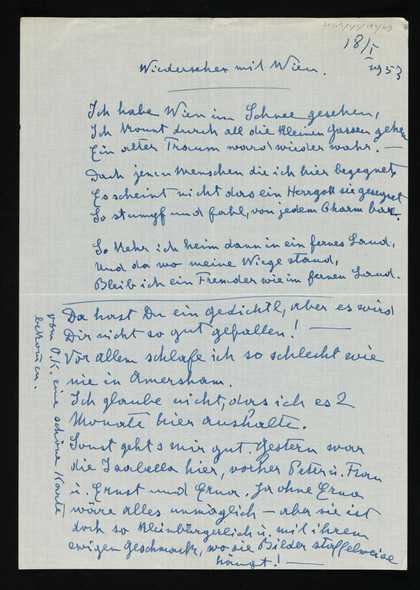 18/I
1953
Wiedersehen mit Wien.
Ich habe Wien im Schnee gesehen,
Ich konnt durch all die kleinen Gassen gehen
Ein alter Traum ward wieder wahr. —
Doch jenen Menschen die ich hier begegnet,
Es scheint nicht das ein Herrgott sie gesegnet
So stumpf und fahl, von jedem Charm bar.
So kehr ich heim dann in ein fernes Land,
Und da wo meine Wiege stand,
Bleib ich ein Fremder wie im fernen Land.
Da hast Du ein gedichtl, aber es wird
Dir nicht so gut gefallen! —
Vor allem schlafe ich so schlecht wie
nie in Amersham.
Ich glaube nicht, das ich es 2
Monate hier aushalte.
Sonst geht's mir gut. Gestern war
die Isabella hier, vorher Peter u. Frau
u. Ernst und Erna. Ja ohne Erna
wäre alles unmöglich – aber sie ist
doch so kleinbürgerlich u. mit ihrem
ewigen Geschmack, wo sie Bilder staffelweise
hängt! —
vom O.K. eine schöne Karte
bekommen.